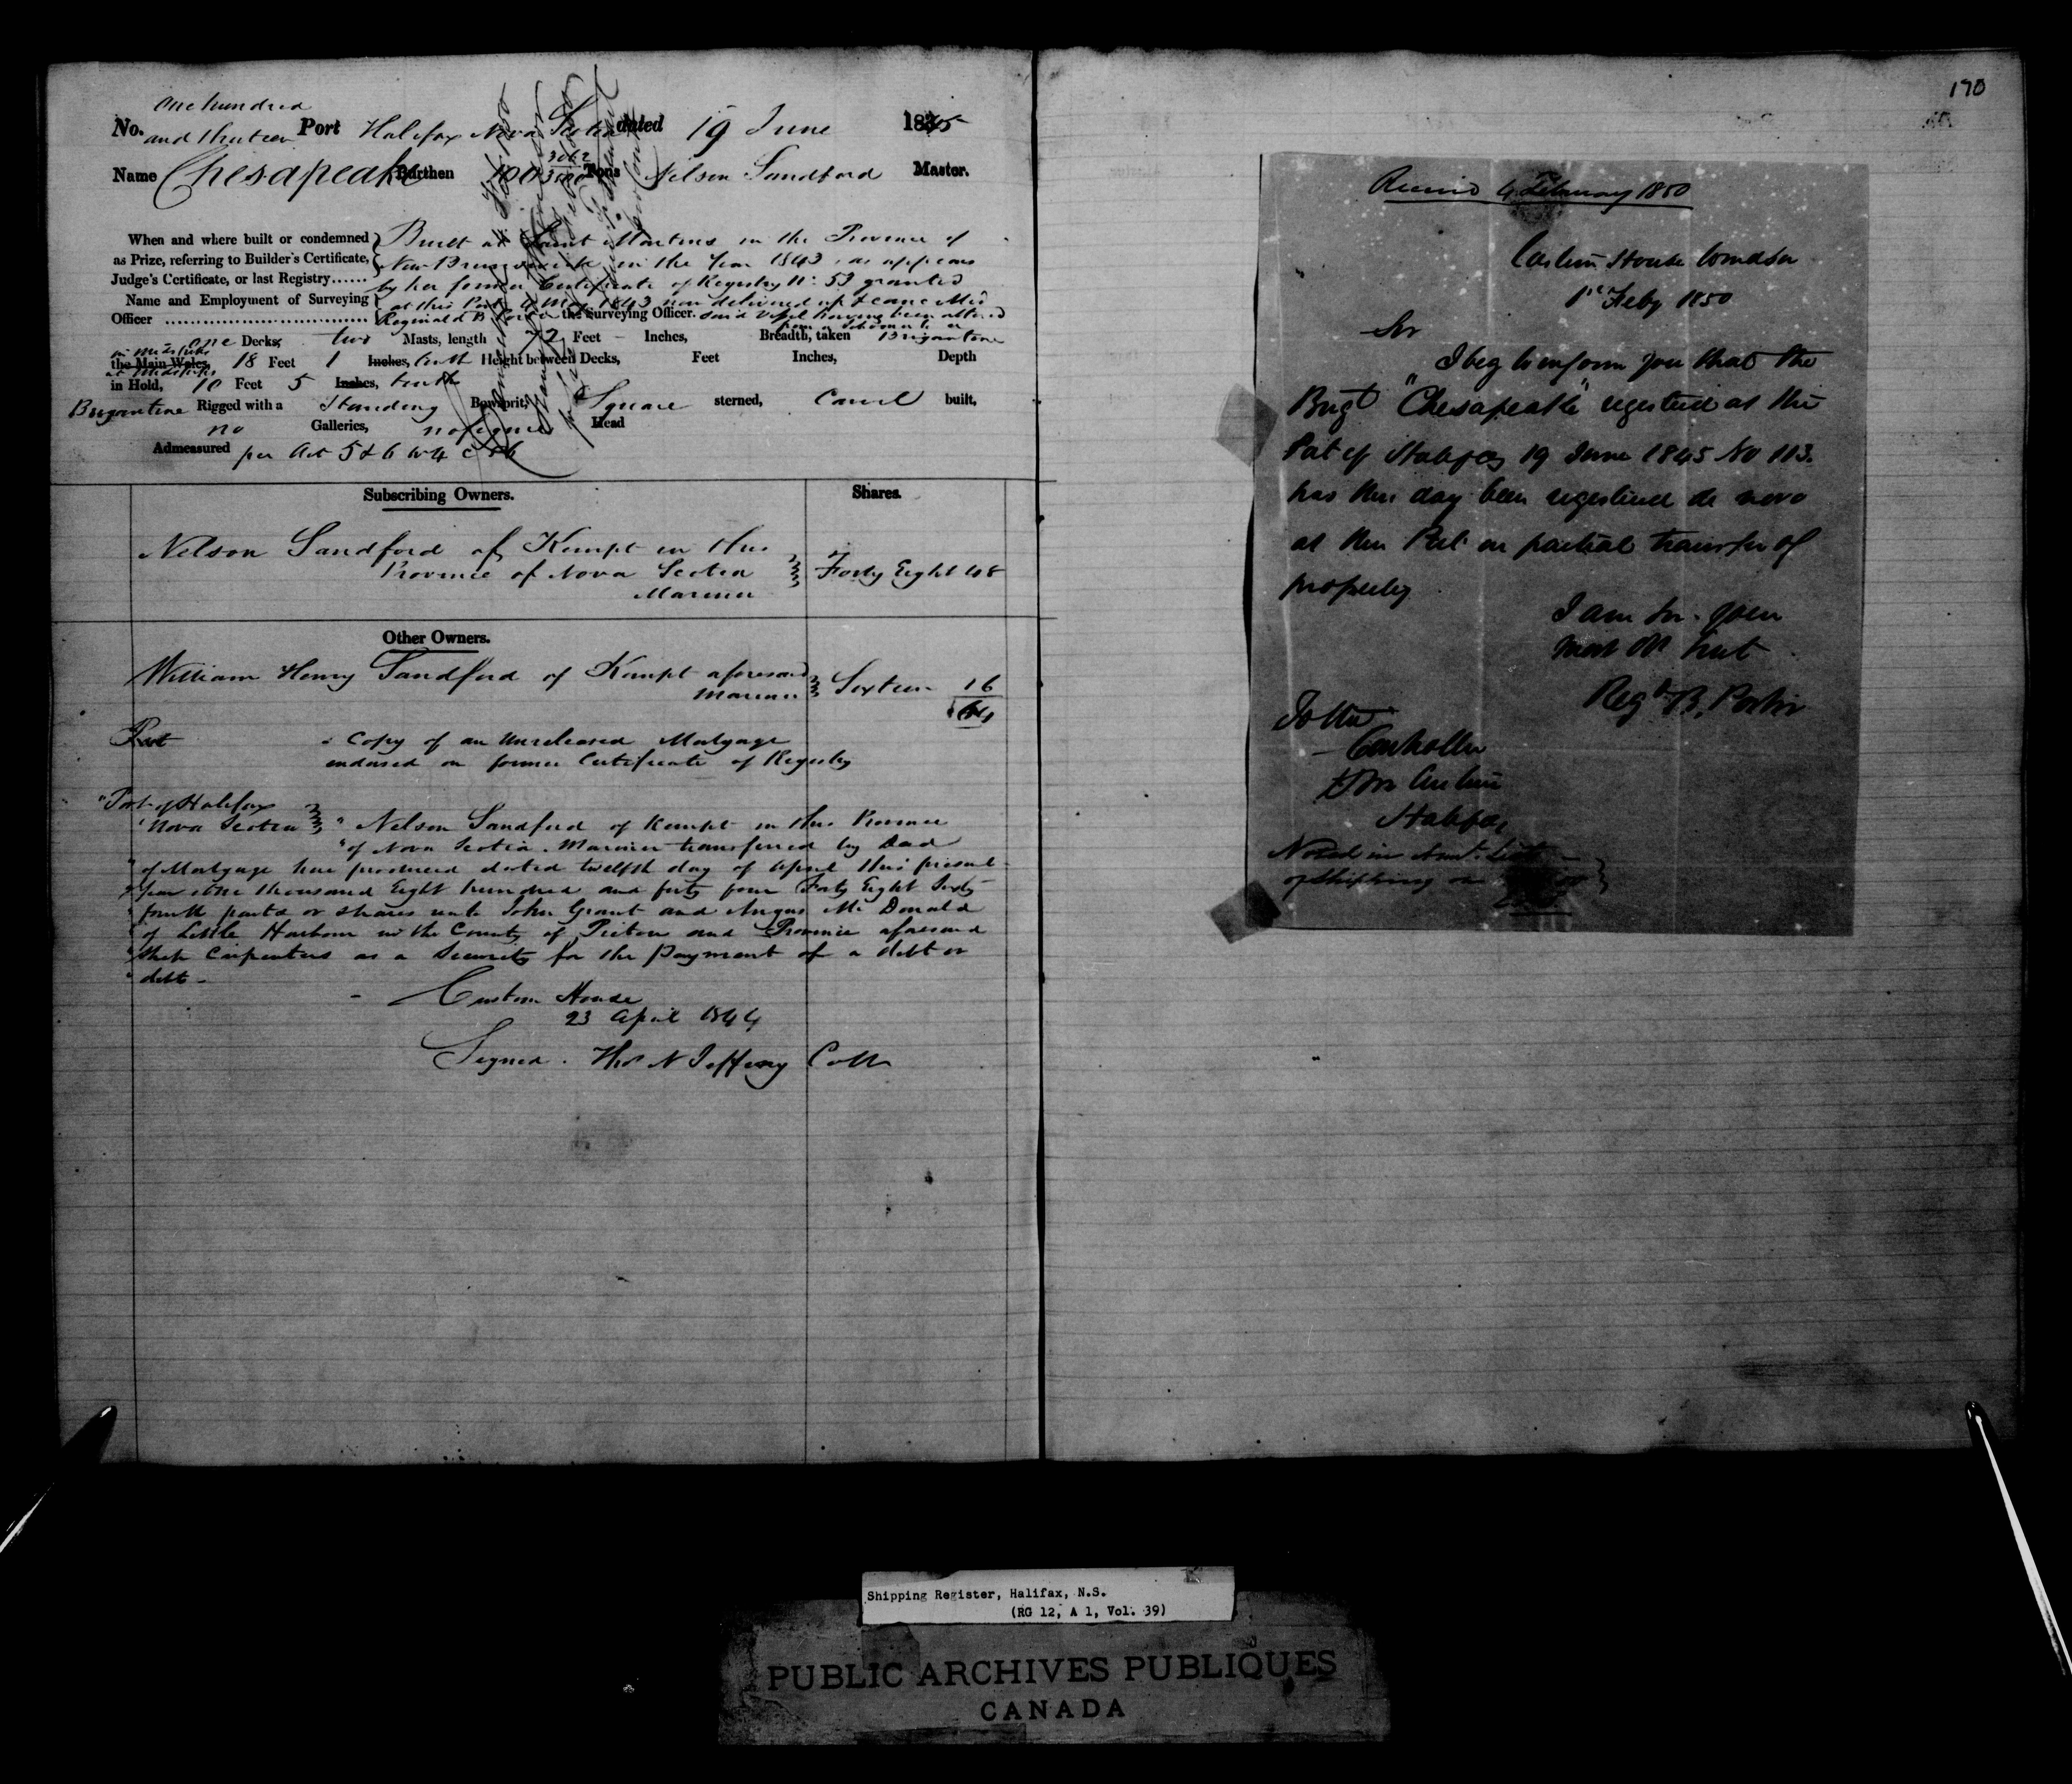 one hundred
No. and thirteen Port Halifax Nova Scotia dated 19 June 1845
Name Chesapeake Burthen 100 3062/3500 Tons Nelson Sandford Master.
When and where built or condemned as Prize, referring to Builder's Certificate, Judge's Certificate, or last Registry......
Built at Saint Martins in the Province of
New Brunswick in the Year 1843, as appears
by her former Certificate of Registry No: 53 granted
at this Port May 1843 now delivered up & cancelled
Name and Employment of Surveying Officer
Reginald B. Porter the Surveying Officer. said vessel having been altered
from a schooner to a
one Decks, two Masts, length 72 Feet - Inches, Breadth, taken Brigantine
in midships
the Main Wales, 18 Feet 1 Inches, tenth Height between Decks, Feet Inches, Depth
at midships
in Hold, 10 Feet 5 Inches, tenth
Brigantine Rigged with a Standing Bowsprit, Square sterned, Carvel built,
no Galleries, no figure Head
Admeasured per Act 5 & 6 W 4 C 56
Subscribing Owners. Shares.
Nelson Sandford of Kempt in this
Province of Nova Scotia Forty Eight 48
Mariner
Other Owners.
William Henry Sandford of Kempt aforesaid
Mariner Sixteen 16
64
Port
Copy of an Unreleased Mortgage
endorsed on former Certificate of Registry
"Port of Halifax
"Nova Scotia " Nelson Sandford of Kempt in this Province
"of Nova Scotia Mariner transferred by Deed
"of Mortgage here produced dated twelfth day of April this present
"year One thousand Eight hundred and forty four Forty Eight Sixty
"fourth parts or shares unto John Grant and Angus Mc Donald
"of Little Harbour in the County of Pictou and Province aforesaid
"Ship Carpenters as a Security for the Payment of a debt or
"debts -
Custom House
23 April 1844
Signed. Thos N Jeffery Collr
170
Received 4 February 1850
Custom House Windsor
1st Feby 1850
Sir
I beg to inform you that the
Brigt "Chesapeake" registered at the
Port of Halifax 19 June 1845 No 113.
has this day been registered de novo
at this Port on partial transfer of
property
I am Sir. Your
most Ob Servt
Regd B. Porter
To the
Controller
Customs
Halifax
Noted in Amt. List
of Shipping
Shipping Register, Halifax, N.S.
(RG 12, A 1, Vol. 39)
PUBLIC ARCHIVES PUBLIQUES
CANADA